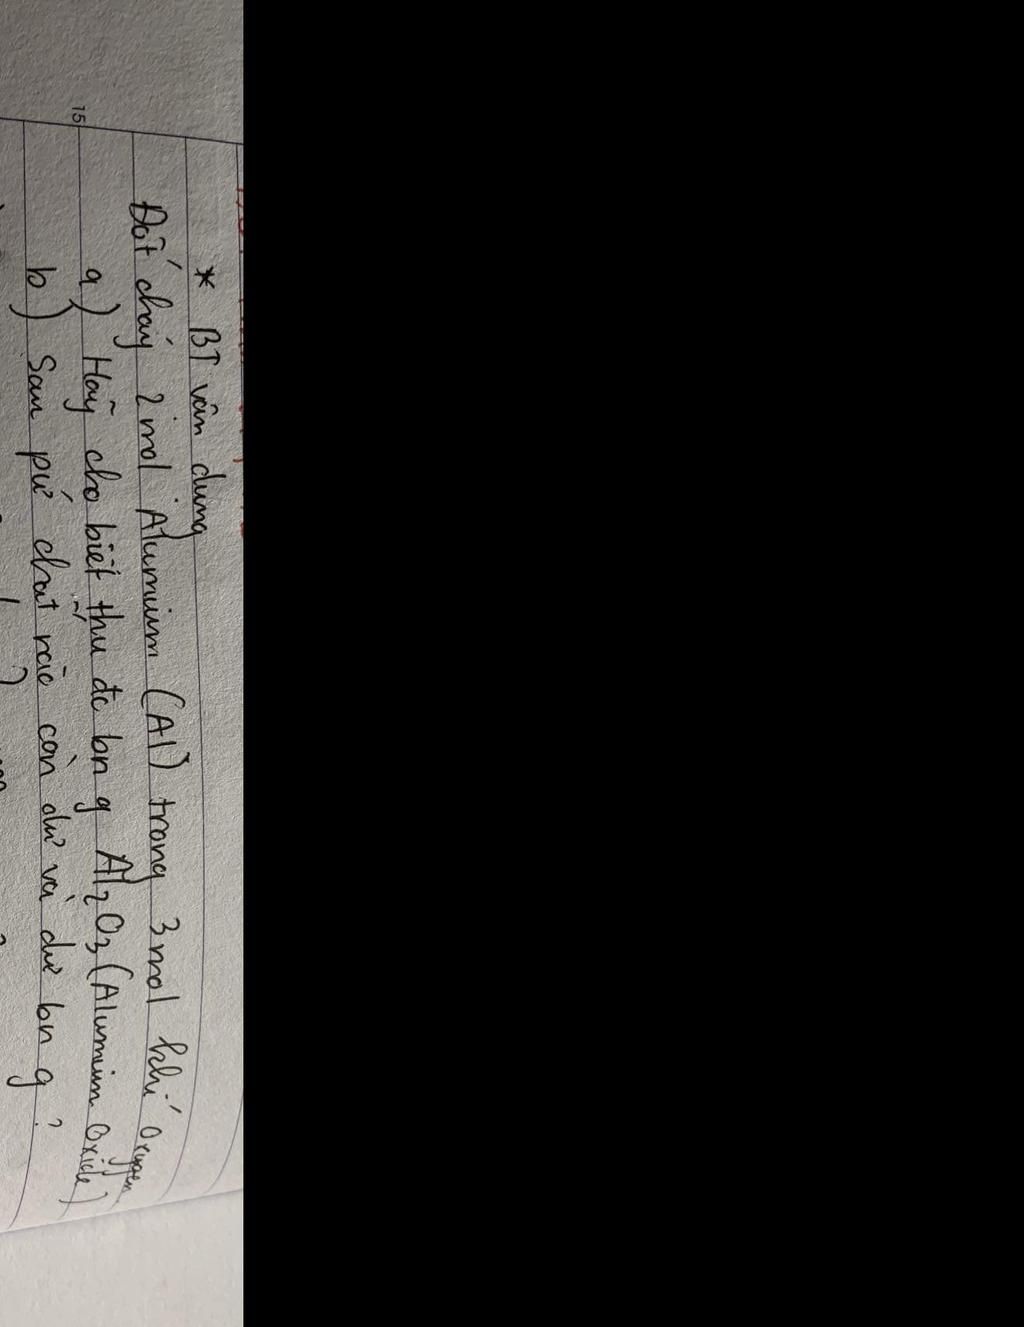 * BT vân dung
Đốt cháy 2 mol Alumium (Al) trong 3 mol khí Oxygen
a) Hãy cho biết thu đc bn g Al2O3 (Alumium Oxide)
15
b) Sau pứ chất nào còn dư và dư bn g?